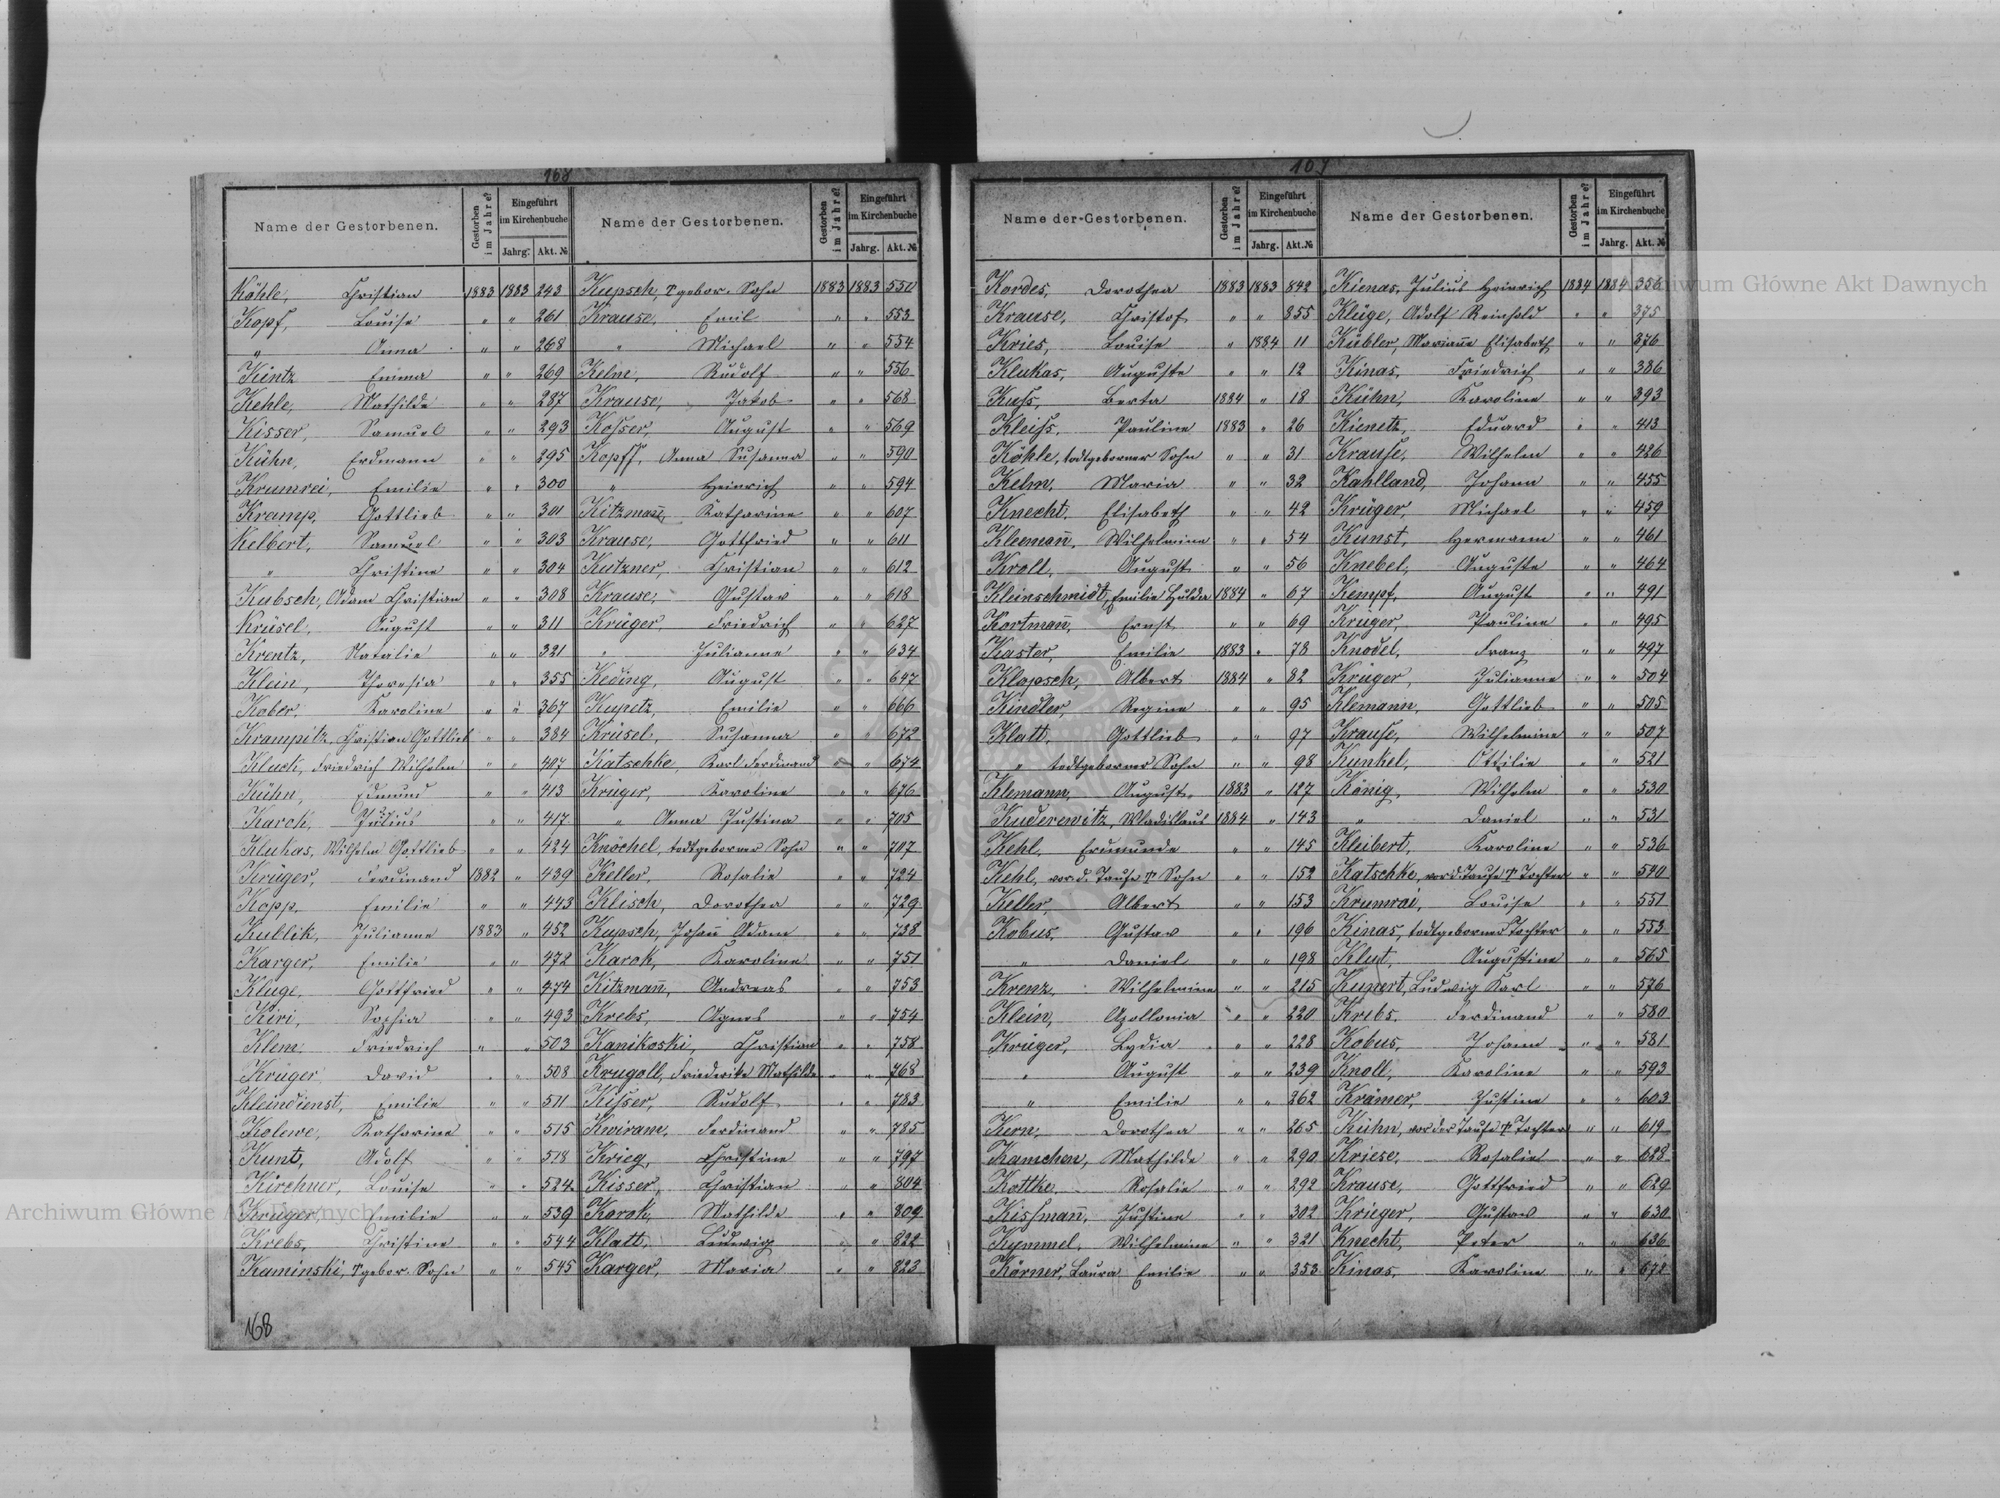 168
Name der Gestorbenen. Gestorben im Jahre? Eingeführt im Kirchenbuche Jahrg. Akt. №
Köhle, Christian 1883 1883 243
Kopf, Louise " " 261
" Anna " " 268
Kintz Emma " " 269
Kehle, Mathilde " " 287
Kisser, Samuel " " 293
Kühn, Erdmann " " 295
Krumrei, Emilie " " 300
Kramp, Gottlieb " " 301
Kelbert, Samuel " " 303
" Christine " " 304
Kubsch, Adam Christian " " 308
Krüsel, August " " 311
Krentz, Natalie " " 321
Klein, Theresia " " 355
Kober, Karoline " " 367
Krampitz, Christian Gottlieb " " 384
Kluck, Friedrich Wilhelm " " 407
Kühn, Edmund " " 413
Karch, Julius " " 417
Klukas, Wilhelm Gottlieb " " 424
Krüger, Ferdinand 1882 " 439
Kopp, Emilie " " 443
Kublik, Julianne 1883 " 452
Karger, Emilie " " 472
Kluge, Gottfried " " 474
Kiri, Sophia " " 493
Klem, Friedrich " " 503
Krüger David " " 508
Kleindienst, Emilie " " 511
Kolewe, Katharine " " 515
Kunt, Adolf " " 518
Kirchner, Louise " " 524
Krüger, Emilie " " 539
Krebs, Christine " " 544
Kaminski, † gebor. Sohn " " 545
168
Name der Gestorbenen. Gestorben im Jahre? Eingeführt im Kirchenbuche Jahrg. Akt. №
Kupsch, † gebor. Sohn 1883 1883 551
Krause, Emil " " 553
" Michael " " 554
Kelm, Rudolf " " 556
Krause, Jakob " " 568
Kosser, August " " 569
Kopff, Anna Susanna " " 590
" Heinrich " " 594
Kitzmann, Katharine " " 607
Krause, Gottfried " " 611
Kutzner, Christian " " 612
Krause, Gustav " " 618
Krüger, Friedrich " " 627
" Julianne " " 634
Keding, August " " 647
Kupetz, Emilie " " 666
Krüsel, Susanna " " 672
Katschke, Karl Ferdinand " " 674
Krüger, Karoline " " 676
" Anna Justina " " 705
Knöchel, todtgeborner Sohn " " 707
Keller, Rosalie " " 724
Klisch, Dorothea " " 729
Kupsch, Johann Adam " " 738
Karch, Karoline " " 751
Kitzmann, Andreas " " 753
Krebs, Agnes " " 754
Kanikoski, Christian " " 758
Krugoll, Friederike Mathilde " " 768
Kisser, Rudolf " " 783
Kwiram, Ferdinand " " 785
Krieg, Christine " " 797
Kisser, Christian " " 804
Karch, Mathilde " " 809
Klatt, Ludwig " " 822
Karger, Maria " " 823
Name der Gestorbenen. Gestorben im Jahre? Eingeführt im Kirchenbuche Jahrg. Akt. №
Kordes, Dorothea 1883 1883 842
Krause, Christof " " 855
Kries, Louise " 1884 11
Klukas, Auguste " " 12
Kuss, Berta 1884 " 18
Kleiss, Pauline 1883 " 26
Köhle, todtgeborner Sohn " " 31
Kelm, Maria " " 32
Knecht, Elisabeth " " 42
Kleemann, Wilhelmine " " 54
Kroll, August " " 56
Kleinschmidt, Emilie Hulda 1884 " 67
Kortmann, Ernst " " 69
Kaster, Emilie 1883 " 78
Klapsch, Albert 1884 " 82
Kindler, Regine " " 95
Klatt, Gottlieb " " 97
" todtgeborner Sohn " " 98
Klemann, August 1883 " 127
Kuderewitz, Wladislaus 1884 " 143
Kehl, Ermunde " " 145
Kehl, vor d. Taufe † Sohn " " 152
Keller, Albert " " 153
Kobus, Gustav " " 196
" Daniel " " 198
Krenz, Wilhelmine " " 215
Klein, Apollonia " " 220
Krüger, Lydia " " 228
" August " " 239
" Emilie " " 262
Kern, Dorothea " " 265
Kamchen, Mathilde " " 290
Kottke, Rosalie " " 292
Kissmann, Justine " " 302
Kymmel, Wilhelmine " " 321
Körner, Laura Emilie " " 353
Name der Gestorbenen. Gestorben im Jahre? Eingeführt im Kirchenbuche Jahrg. Akt. №
Kienas, Julius Heinrich 1884 1884 356
Kluge, Adolf Reinhold " " 375
Kübler, Mariane Elisabeth " " 376
Kinas, Friedrich " " 386
Kühn, Karoline " " 393
Kienetz, Eduard " " 413
Krause, Wilhelm " " 426
Kahlland, Johann " " 455
Krüger, Michael " " 459
Kunst, Hermann " " 461
Knebel, Auguste " " 464
Kempf, August " " 491
Krüger, Pauline " " 495
Knodel, Franz " " 497
Krüger, Julianne " " 504
Klemann, Gottlieb " " 505
Krause, Wilhelmine " " 507
Kunkel, Ottilie " " 521
König, Wilhelm " " 530
" Daniel " " 531
Kleibert, Karoline " " 536
Katschke, vor d. Taufe † Tochter " " 540
Krumrai, Louise " " 551
Kinas, todtgeborne Tochter " " 553
Klut, Augustine " " 565
Kunert, Ludwig Karl " " 576
Krebs, Ferdinand " " 580
Kobus, Johann " " 581
Knoll, Karoline " " 593
Krämer, Justine " " 603
Kühn, vor der Taufe † Tochter " " 619
Kriese, Rosalie " " 628
Krause, Gottfried " " 629
Krieger, Gustav " " 630
Knecht, Peter " " 636
Kinas, Karoline " " 678
Archiwum Główne Akt Dawnych
Archiwum Główne Akt Dawnych